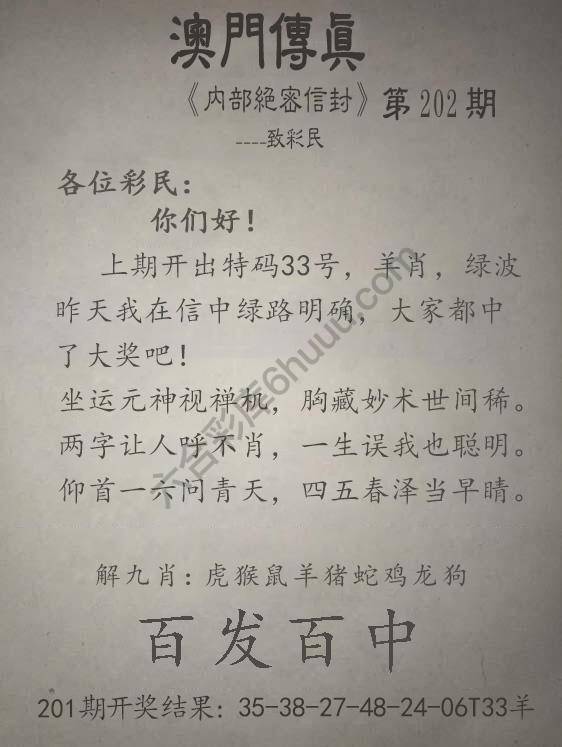 澳門傳眞
《内部絕密信封》第202期
----致彩民
各位彩民：
你们好！
上期开出特码33号，羊肖，绿波
昨天我在信中绿路明确，大家都中
了大奖吧！
坐运元神视禅机，胸藏妙术世间稀。
两字让人呼不肖，一生误我也聪明。
仰首一六问青天，四五春泽当早晴。
解九肖：虎猴鼠羊猪蛇鸡龙狗
百发百中
201期开奖结果：35-38-27-48-24-06T33羊
六合彩库6huuu.com